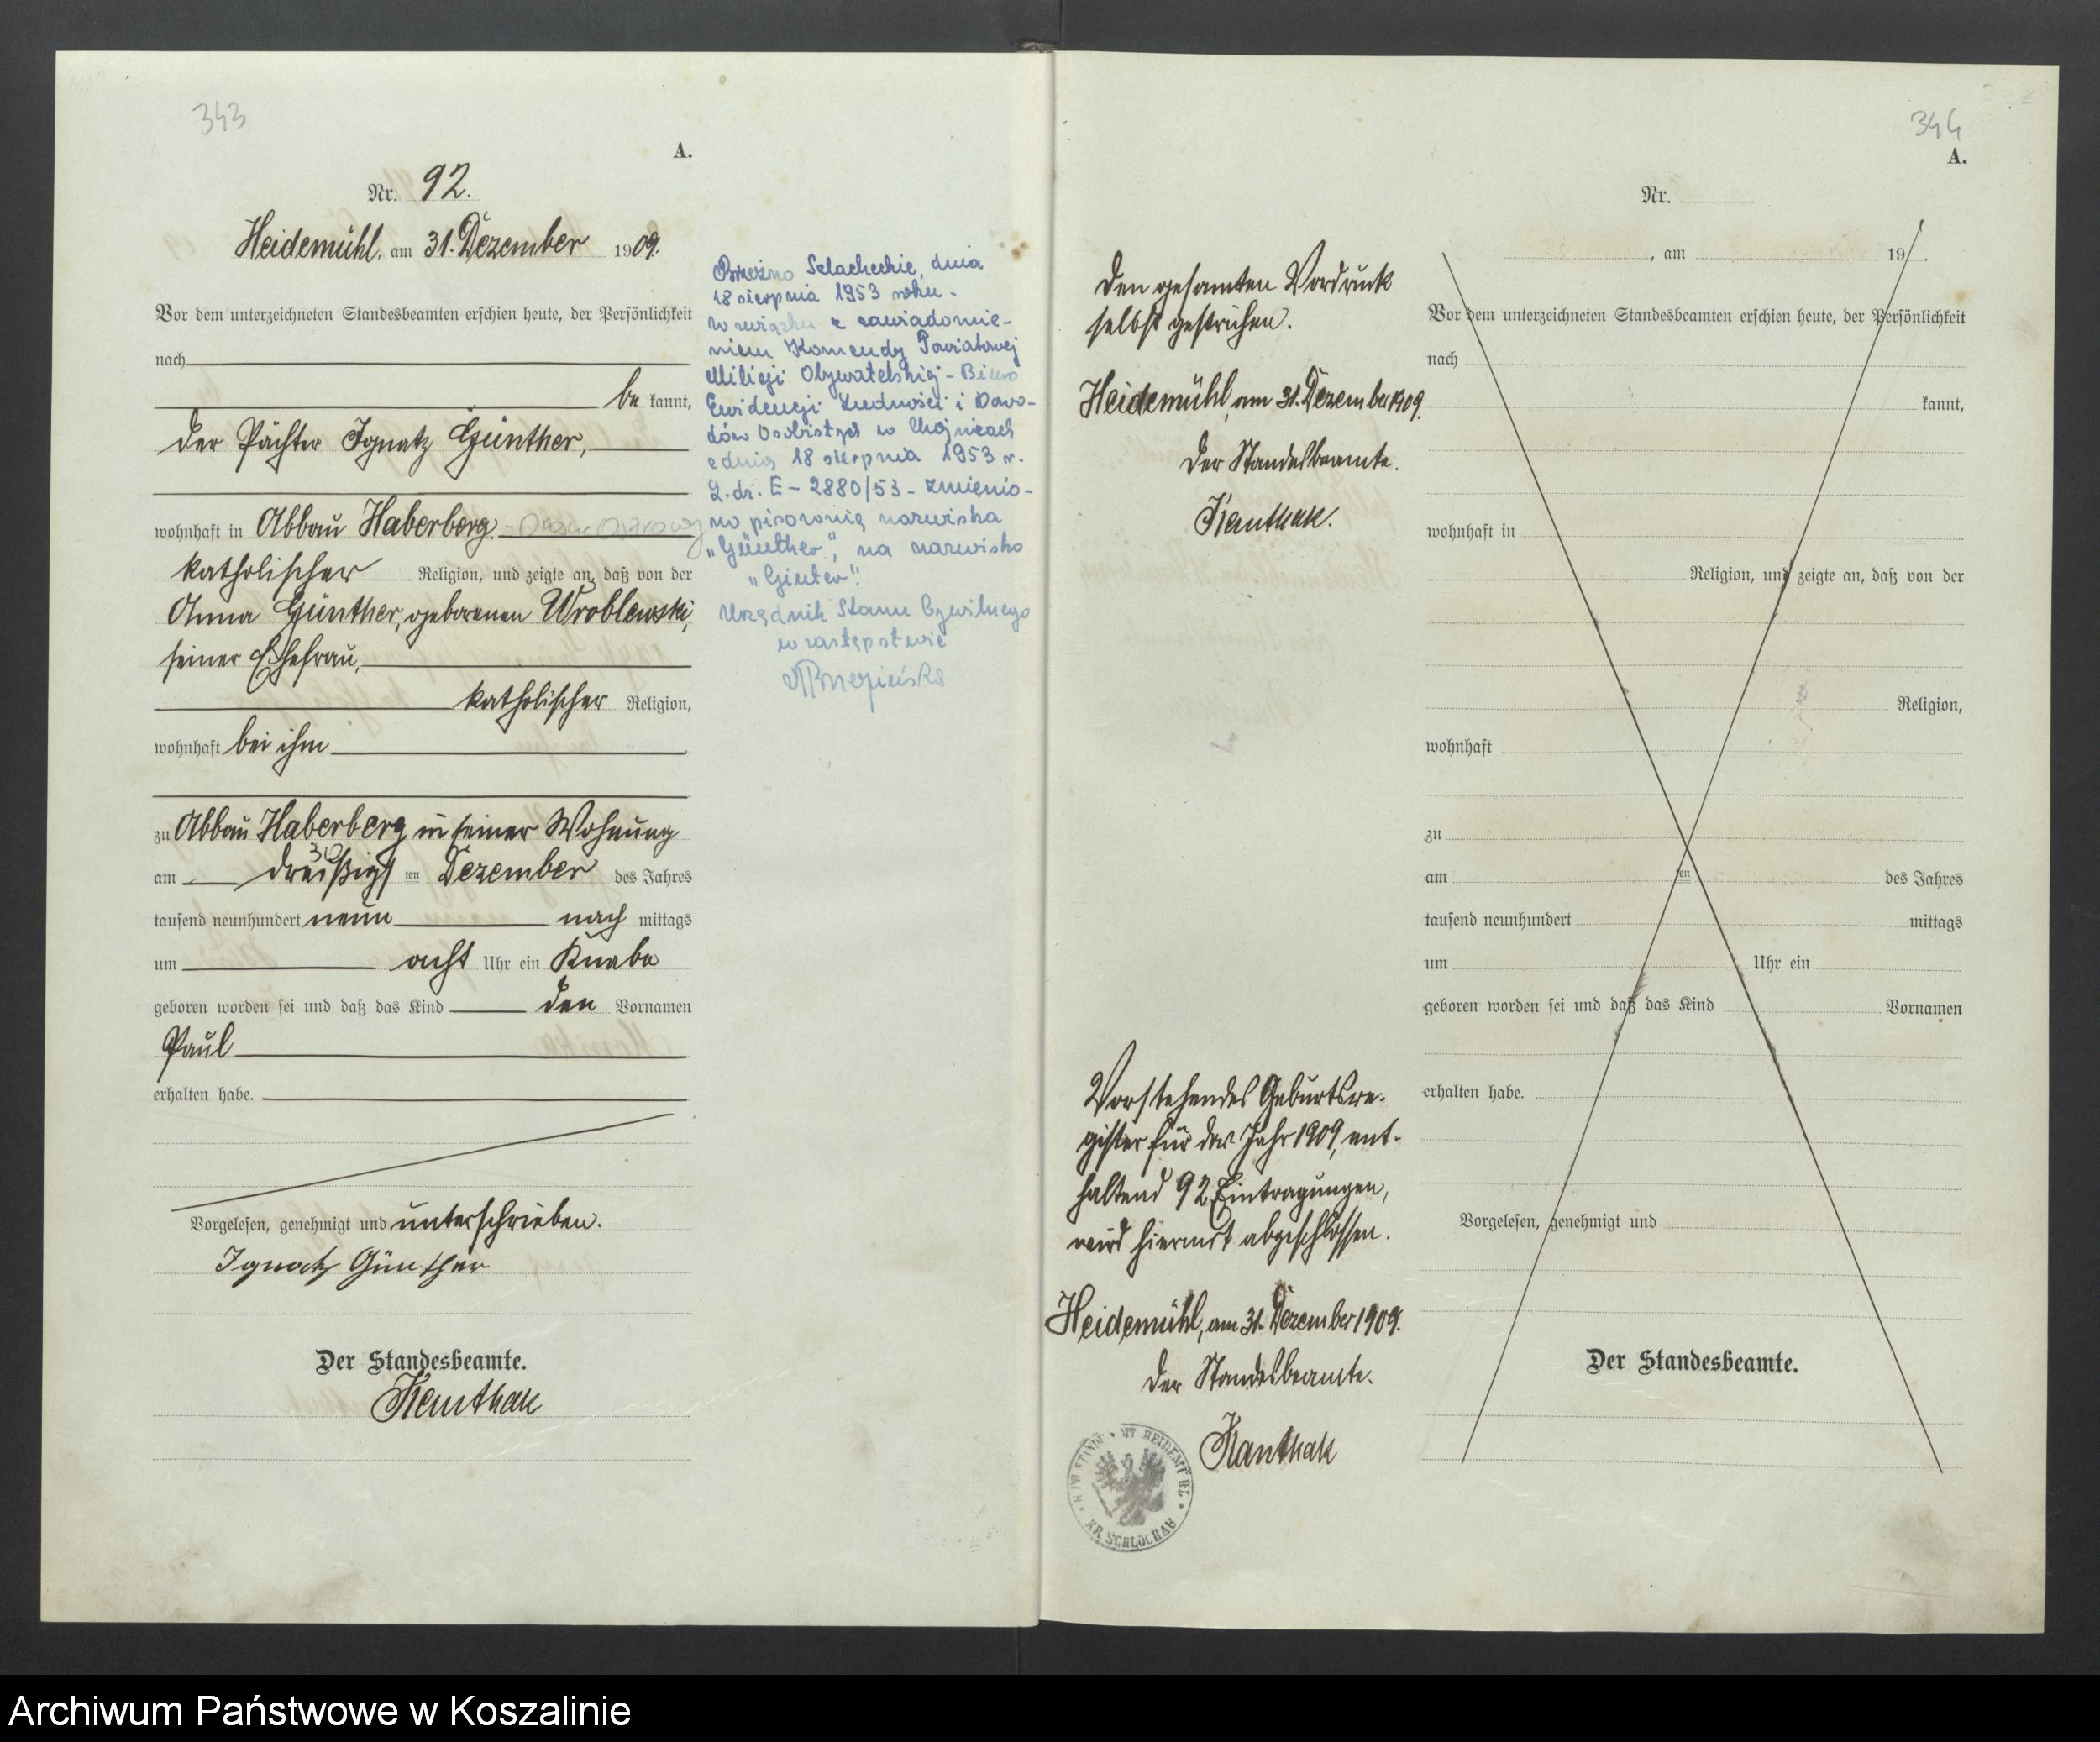 343
A.
Nr. 92.
Heidemühl, am 31. Dezember 1909.
Vor dem unterzeichneten Standesbeamten erschien heute, der Persönlichkeit
nach
be kannt,
der Pächter Ignatz Günther,
wohnhaft in Abbau Haberberg
katholischer Religion, und zeigte an, daß von der
Anna Günther, geborenen Wroblewski,
seiner Ehefrau,
katholischer Religion,
wohnhaft bei ihm
zu Abbau Haberberg in seiner Wohnung
30
am dreißigsten Dezember des Jahres
tausend neunhundert neun nach mittags
um acht Uhr ein Knabe
geboren worden sei und daß das Kind den Vornamen
Paul
erhalten habe.
Vorgelesen, genehmigt und unterschrieben.
Ignatz Günther
Der Standesbeamte.
Kanthak
Brzeźno Szlacheckie, dnia
18 sierpnia 1953 roku.
W związku z zawiadomie-
niem Komendy Powiatowej
Milicji Obywatelskiej - Biuro
Ewidencji Ludności i Dowo-
dów Osobistych w Chojnicach
z dnia 18 sierpnia 1953 r.
L. dz. E - 2880/53 - zmienio-
no pisownię nazwiska
"Günther", na nazwisko
"Ginter".
Urzędnik Stanu Cywilnego
w zastępstwie
344
A.
Nr.
, am 19 .
Vor dem unterzeichneten Standesbeamten erschien heute, der Persönlichkeit
nach
kannt,
wohnhaft in
Religion, und zeigte an, daß von der
Religion,
wohnhaft
zu
am ten des Jahres
tausend neunhundert mittags
um Uhr ein
geboren worden sei und daß das Kind Vornamen
erhalten habe.
Vorgelesen, genehmigt und
Der Standesbeamte.
Den gesamten Vordruck
selbst gestrichen.
Heidemühl, am 31. Dezember 1909.
Der Standesbeamte.
Kanthak.
Vorstehendes Geburtsre-
gister für das Jahr 1909, ent-
haltend 92 Eintragungen,
wird hiermit abgeschlossen.
Heidemühl, am 31. Dezember 1909.
Der Standesbeamte.
Kanthak
KR. SCHLOCHAU
Archiwum Państwowe w Koszalinie